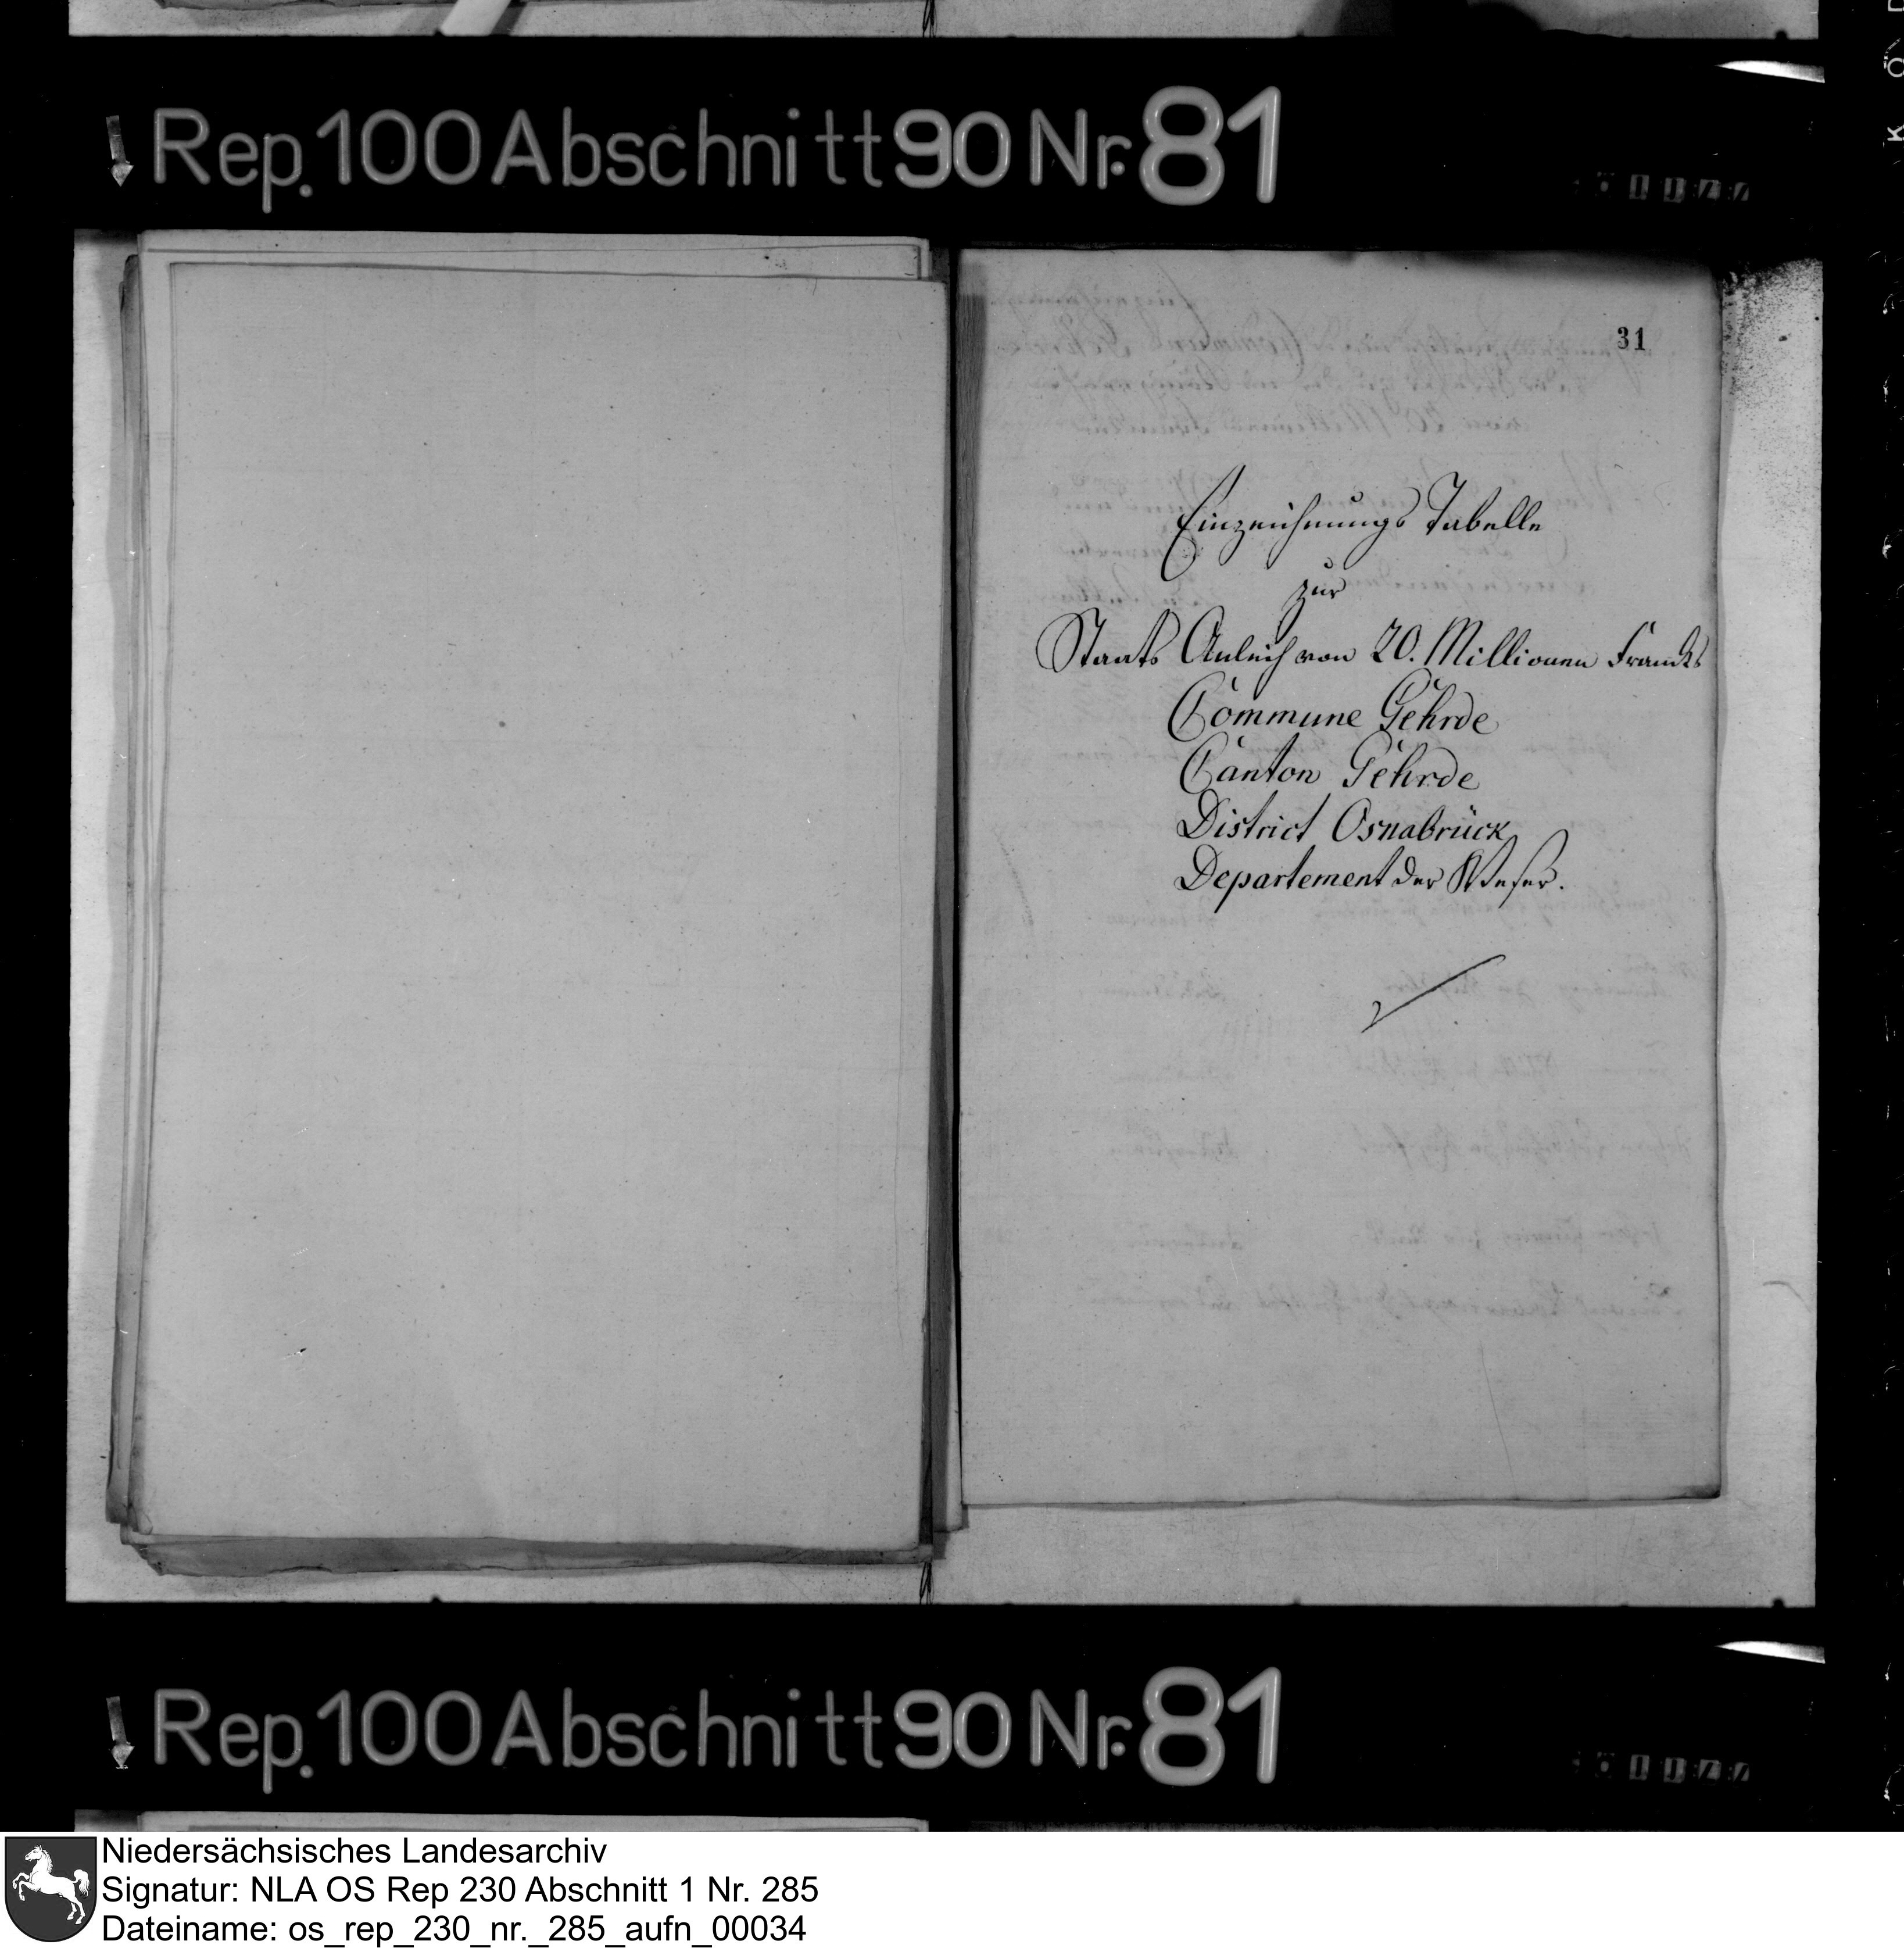 Rep. 100 Abschnitt 90 Nr. 81
31
Einzeichnungs Tabelle
zur
Staats Anleih von 20. Millionen Francks
Commune Gehrde
Canton Gehrde
District Osnabrück
Departement der Weser.
Rep. 100 Abschnitt 90 Nr. 81
Niedersächsisches Landesarchiv
Signatur: NLA OS Rep 230 Abschnitt 1 Nr. 285
Dateiname: os_rep_230_nr._285_aufn_00034